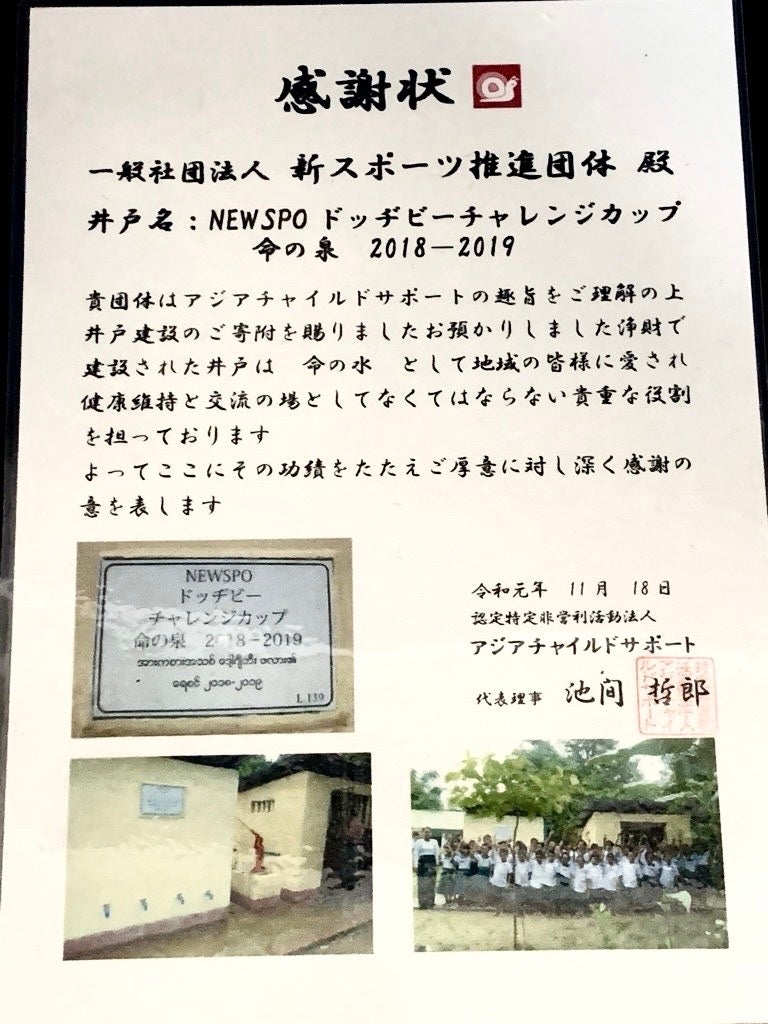 感謝状
一般社団法人 新スポーツ推進団体 殿
井戸名：NEWSPO ドッヂビーチャレンジカップ
命の泉 2018―2019
貴団体はアジアチャイルドサポートの趣旨をご理解の上
井戸建設のご寄附を賜りましたお預かりしました浄財で
建設された井戸は 命の水 として地域の皆様に愛され
健康維持と交流の場としてなくてはならない貴重な役割
を担っております
よってここにその功績をたたえご厚意に対し深く感謝の
意を表します
NEWSPO
ドッヂビー
チャレンジカップ
命の泉 2018-2019
အားကစားအသစ် ဒေါ့ဂျီဘီး ဖလား၏
ရေစင် ၂၀၁၈-၂၀၁၉
L 139
令和元年 11月 18日
認定特定非営利活動法人
アジアチャイルドサポート
代表理事 池間 哲郎